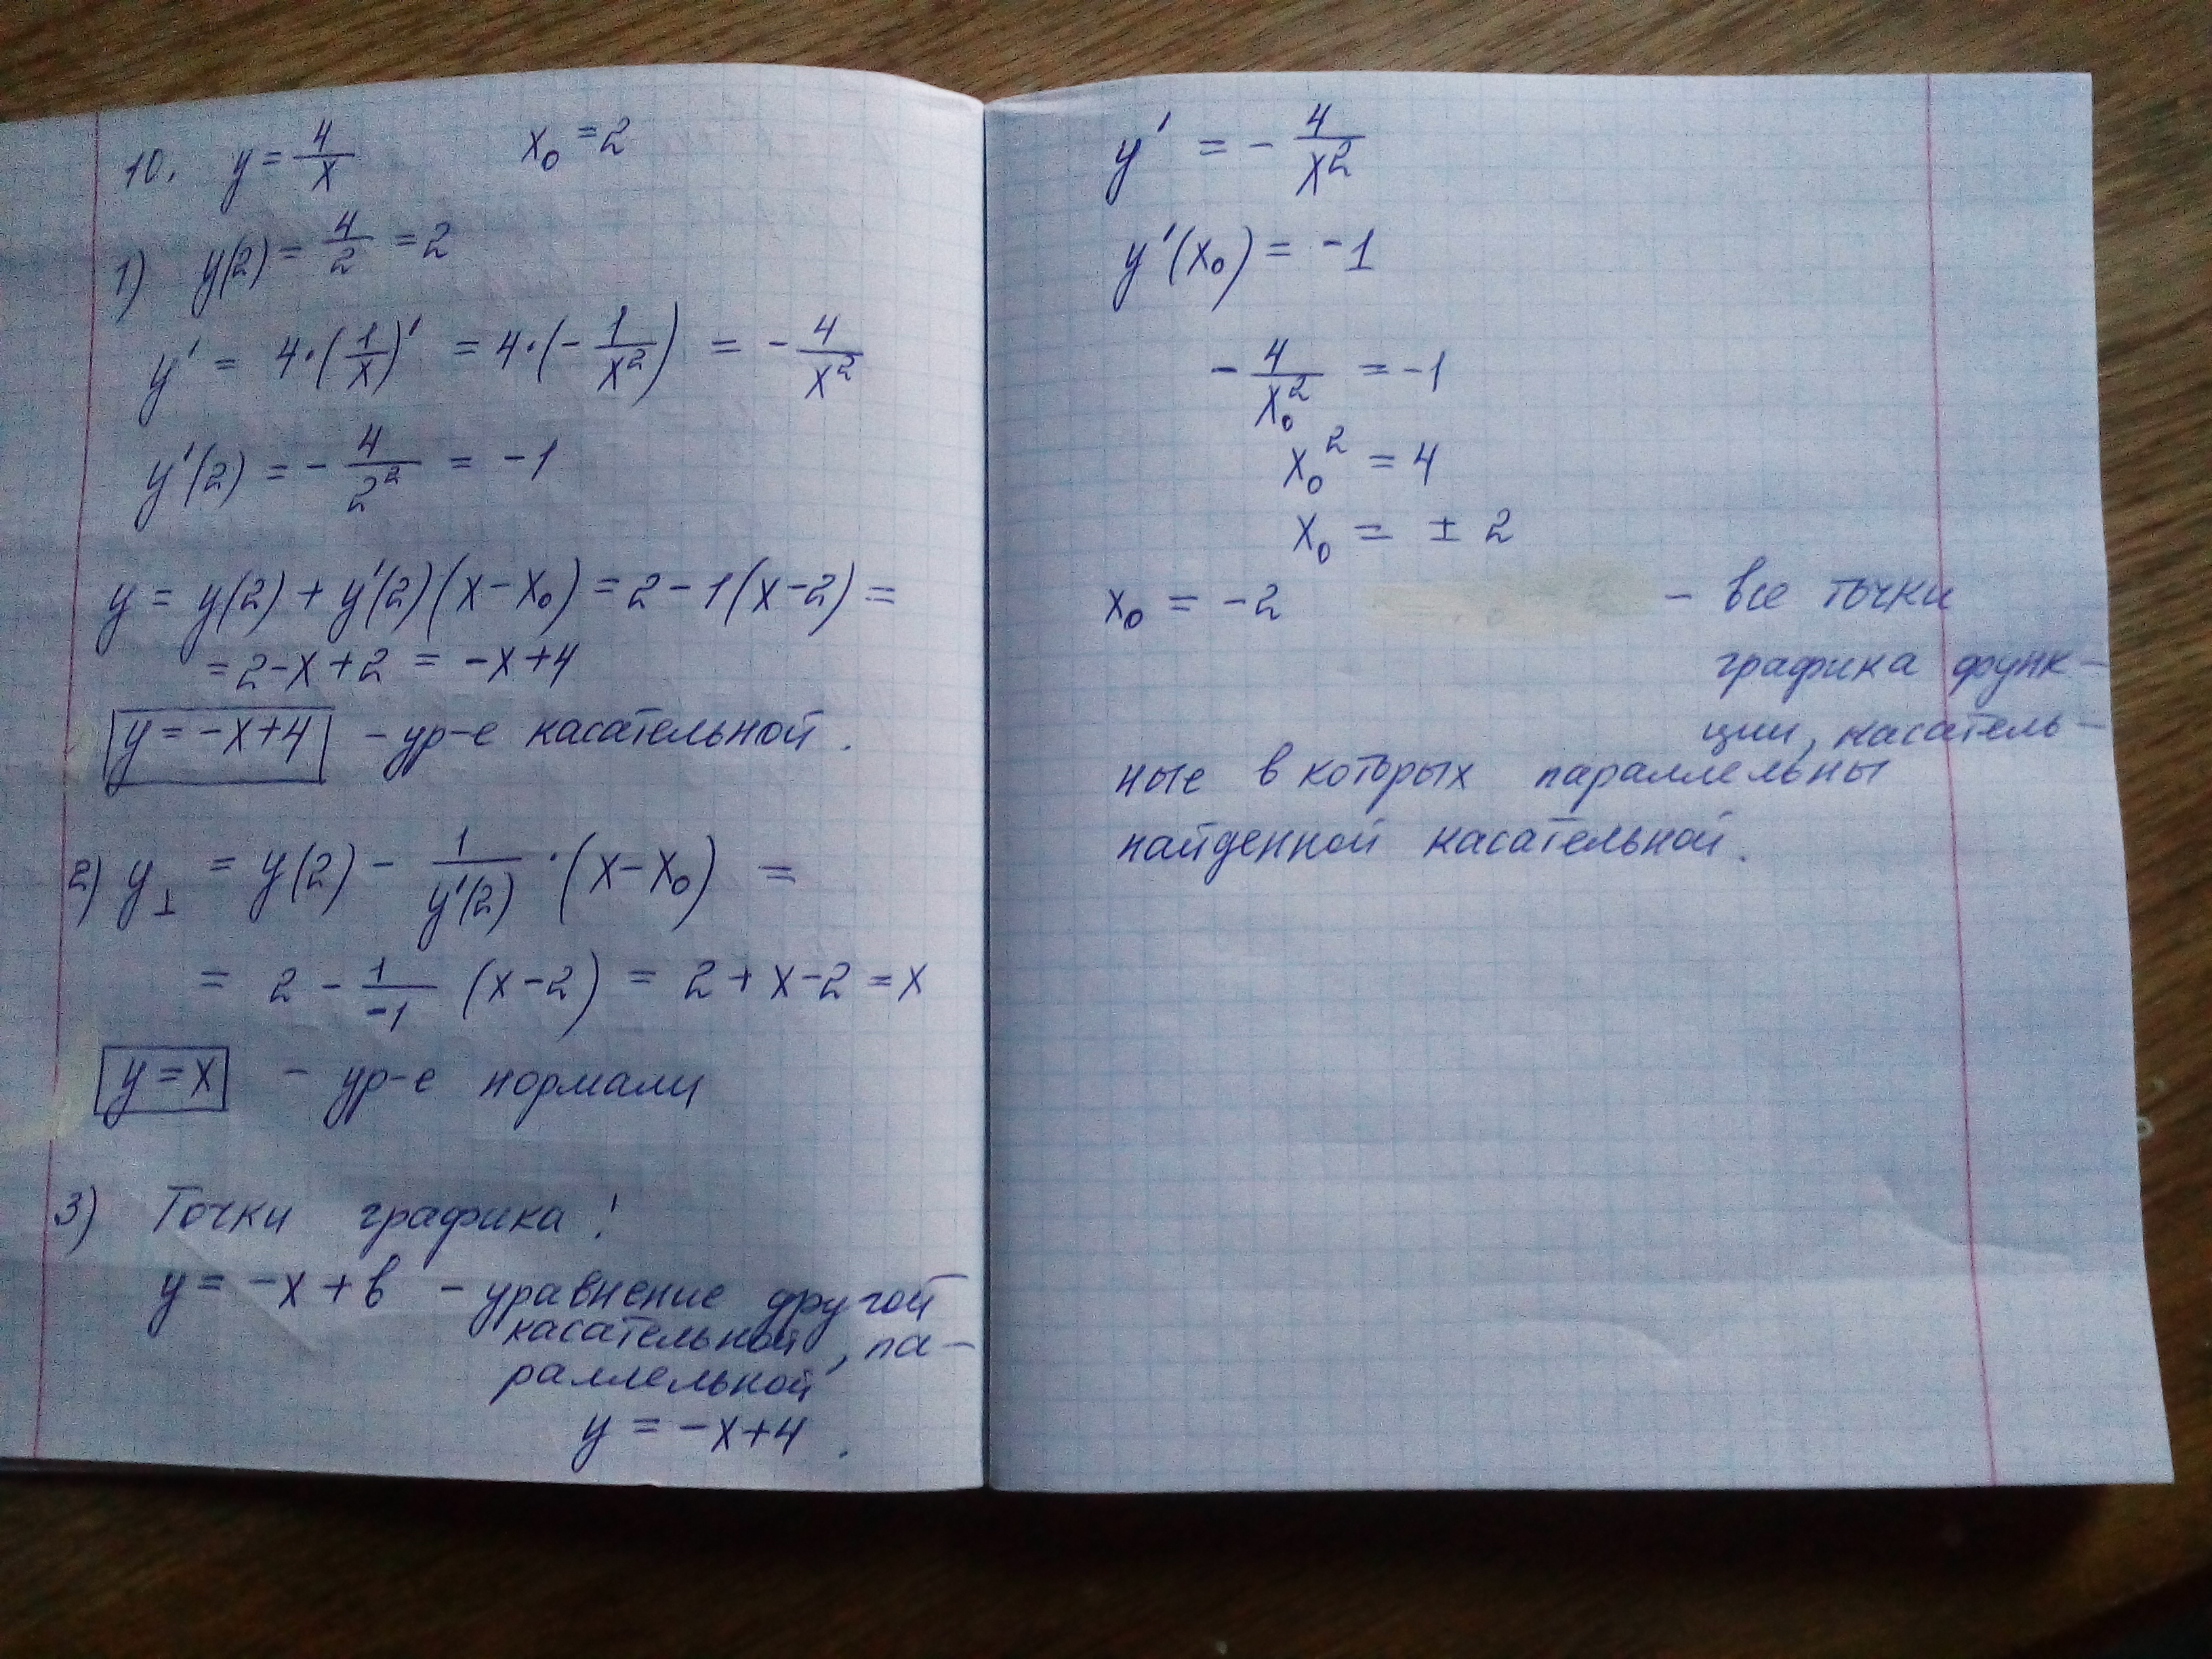 10. y = 4/x    x₀ = 2
1) y(2) = 4/2 = 2
y' = 4·(1/x)' = 4·(-1/x²) = -4/x²
y'(2) = -4/2² = -1
y = y(2) + y'(2)(x-x₀) = 2-1(x-2) =
= 2-x+2 = -x+4
y = -x+4 - ур-е касательной.
2) y⊥ = y(2) - 1/y'(2) · (x-x₀) =
= 2 - 1/-1 (x-2) = 2+x-2 = x
y = x - ур-е нормали
3) Точки графика!
y = -x+b - уравнение другой
касательной, па-
раллельной
y = -x+4.
y' = -4/x²
y'(x₀) = -1
-4/x₀² = -1
x₀² = 4
x₀ = ±2
x₀ = -2 - все точки
графика функ-
ции, касатель-
ные в которых параллельны
найденной касательной.